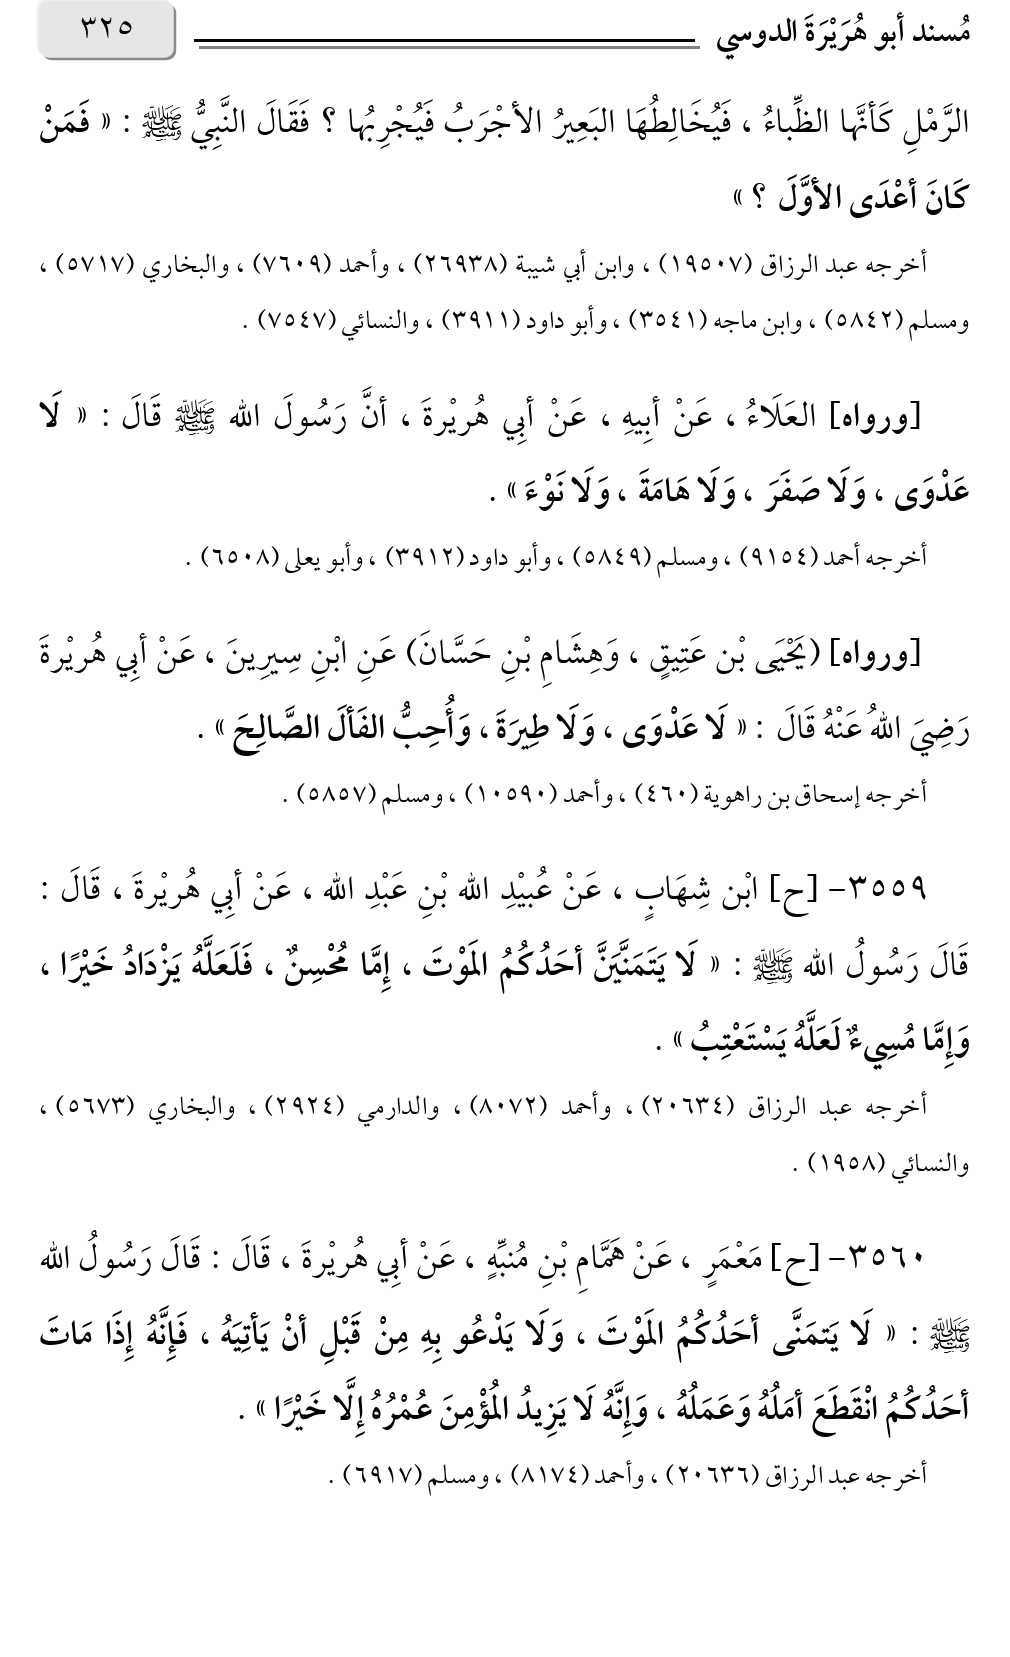 مُسند أبو هُرَيْرَةَ الدوسي ٣٢٥
الرَّمْلِ كَأنَّها الظِّباءُ ، فَيُخَالِطُهَا البَعِيرُ الأجْرَبُ فَيُجْرِبُها ؟ فَقَالَ النَّبِيُّ ﷺ : « فَمَنْ
كَانَ أعْدَى الأوَّلَ ؟ »
أخرجه عبد الرزاق (١٩٥٠٧) ، وابن أبي شيبة (٢٦٩٣٨) ، وأحمد (٧٦٠٩) ، والبخاري (٥٧١٧) ،
ومسلم (٥٨٤٢) ، وابن ماجه (٣٥٤١) ، وأبو داود (٣٩١١) ، والنسائي (٧٥٤٧) .
[ورواه] العَلَاءُ ، عَنْ أبِيهِ ، عَنْ أبِي هُريْرةَ ، أنَّ رَسُولَ الله ﷺ قَالَ : « لَا
عَدْوَى ، وَلَا صَفَرَ ، وَلَا هَامَةَ ، وَلَا نَوْءَ » .
أخرجه أحمد (٩١٥٤) ، ومسلم (٥٨٤٩) ، وأبو داود (٣٩١٢) ، وأبو يعلى (٦٥٠٨) .
[ورواه] (يَحْيَى بْن عَتِيقٍ ، وَهِشَامِ بْنِ حَسَّانَ) عَنِ ابْنِ سِيرِينَ ، عَنْ أبِي هُريْرةَ
رَضِيَ اللهُ عَنْهُ قَالَ : « لَا عَدْوَى ، وَلَا طِيرَةَ ، وَأُحِبُّ الفَألَ الصَّالِحَ » .
أخرجه إسحاق بن راهوية (٤٦٠) ، وأحمد (١٠٥٩٠) ، ومسلم (٥٨٥٧) .
٣٥٥٩- [ح] ابْن شِهَابٍ ، عَنْ عُبيْدِ الله بْنِ عَبْدِ الله ، عَنْ أبِي هُريْرةَ ، قَالَ :
قَالَ رَسُولُ الله ﷺ : « لَا يَتَمَنَّيَنَّ أحَدُكُمُ المَوْتَ ، إِمَّا مُحْسِنٌ ، فَلَعَلَّهُ يَزْدَادُ خَيْرًا ،
وَإِمَّا مُسِيءٌ لَعَلَّهُ يَسْتَعْتِبُ » .
أخرجه عبد الرزاق (٢٠٦٣٤) ، وأحمد (٨٠٧٢) ، والدارمي (٢٩٢٤) ، والبخاري (٥٦٧٣) ،
والنسائي (١٩٥٨) .
٣٥٦٠- [ح] مَعْمَرٍ ، عَنْ هَمَّامِ بْنِ مُنبِّهٍ ، عَنْ أبِي هُريْرةَ ، قَالَ : قَالَ رَسُولُ الله
ﷺ : « لَا يَتمَنَّى أحَدُكُمُ المَوْتَ ، وَلَا يَدْعُو بِهِ مِنْ قَبْلِ أنْ يَأتِيَهُ ، فَإِنَّهُ إِذَا مَاتَ
أحَدُكُمُ انْقَطَعَ أمَلُهُ وَعَمَلُهُ ، وَإِنَّهُ لَا يَزِيدُ المُؤْمِنَ عُمْرُهُ إِلَّا خَيْرًا » .
أخرجه عبد الرزاق (٢٠٦٣٦) ، وأحمد (٨١٧٤) ، ومسلم (٦٩١٧) .